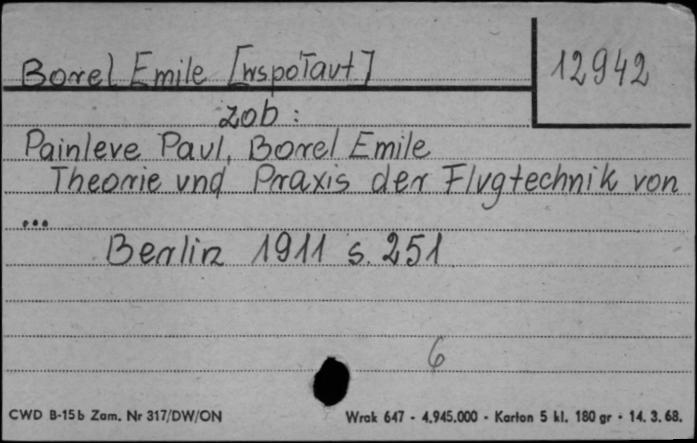 Borel Emile [współaut]
12942
zob:
Painleve Paul, Borel Emile
Theorie und Praxis der Flugtechnik von
...
Berlin 1911 s. 251
6
CWD B-15b Zam. Nr 317/DW/ON
Wrak 647 - 4.945.000 - Karton 5 kl. 180 gr - 14. 3. 68.